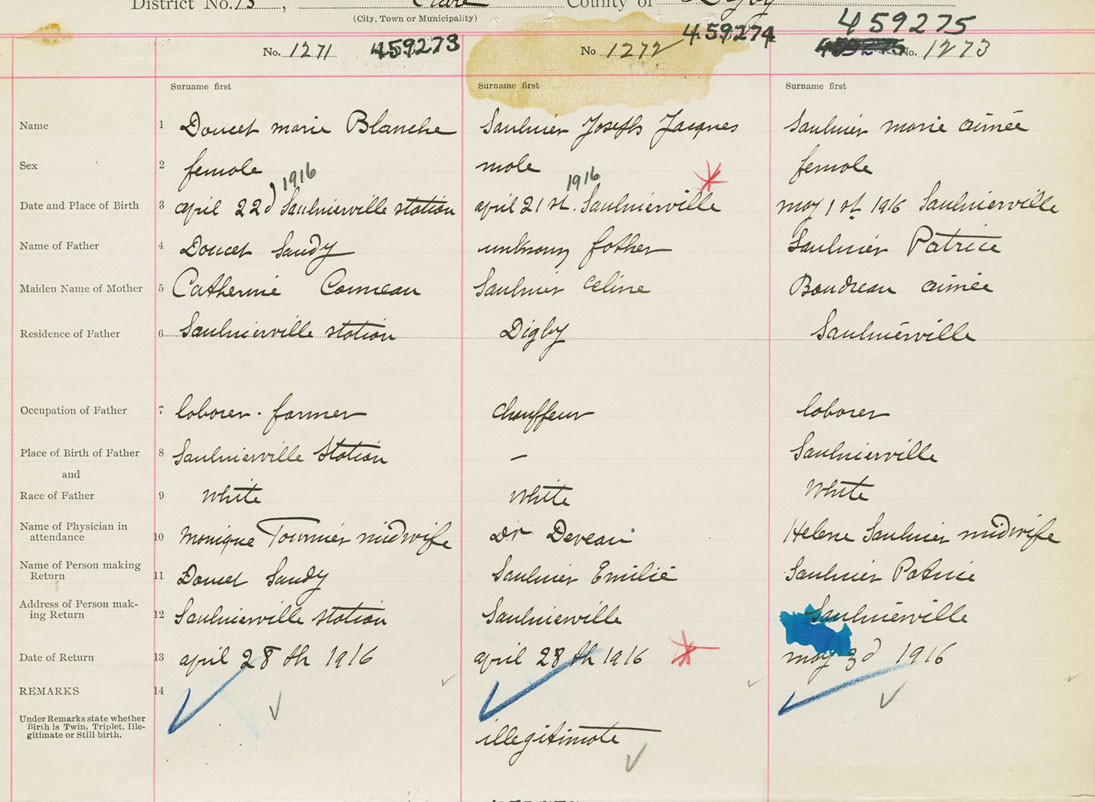 District No. 13, Clare County of Digby
(City, Town or Municipality)
459275
No. 1271 459273 No 1272 459274 No. 1273
Surname first Surname first Surname first
Name 1 Doucet marie Blanche Saulnier Joseph Jacques Saulnier marie aimée
Sex 2 female male female
1916 1916
Date and Place of Birth 3 april 22d Saulnierville station april 21 st. Saulnierville may 1 st 1916 Saulnierville
Name of Father 4 Doucet Sandy unknown father Saulnier Patrice
Maiden Name of Mother 5 Catherine Comeau Saulnier Celine Boudreau aimée
Residence of Father 6 Saulnierville station Digby Saulnierville
Occupation of Father 7 laborer - farmer chauffeur laborer
Place of Birth of Father 8 Saulnierville Station – Saulnierville
and
Race of Father 9 White White White
Name of Physician in
attendance 10 Monique midwife Dr Deveau Helene Saulnier midwife
Name of Person making
Return 11 Doucet Sandy Saulnier Emilie Saulnier Patrice
Address of Person mak-
ing Return 12 Saulnierville station Saulnierville Saulnierville
Date of Return 13 april 28 th 1916 april 28 th 1916 may 3d 1916
REMARKS 14
Under Remarks state whether
Birth is Twin, Triplet, Ille-
gitimate or Still birth.
illegitimate